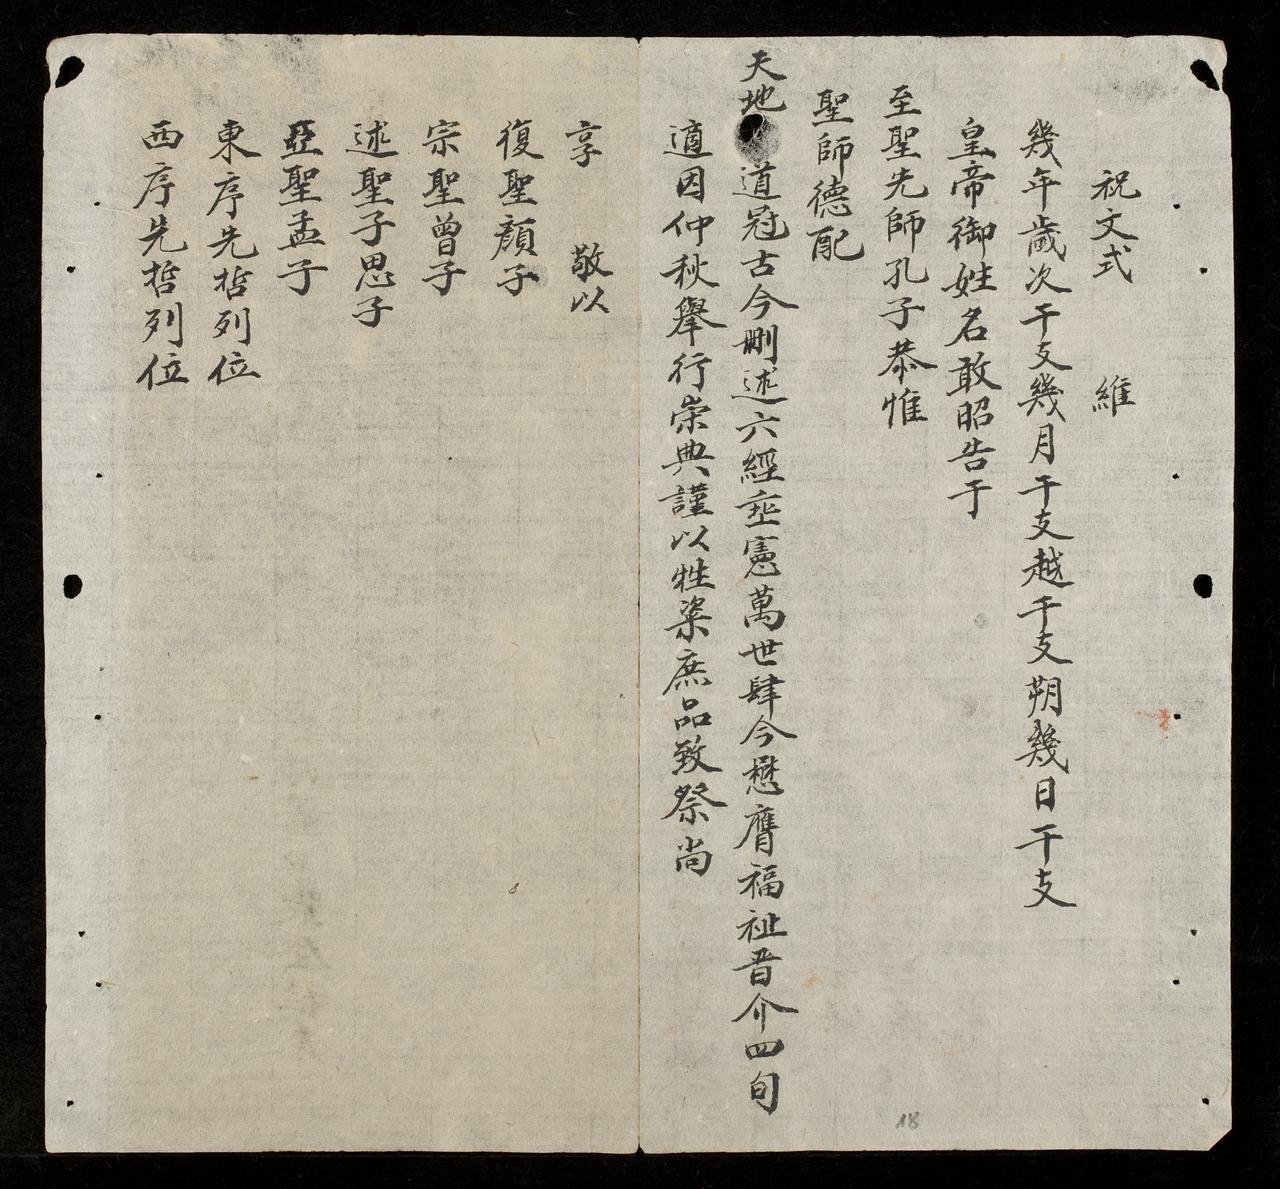 祝文式 維
幾年歲次干支幾月干支越干支朔幾日干支
皇帝御姓名敢昭告于
至聖先師孔子恭惟
聖師德配
天地道冠古今刪述六經垂憲萬世肆今懋膺福祉晋介四旬
適因仲秋舉行崇典謹以牲粢庶品致祭尚
享 敬以
復聖顏子
宗聖曾子
述聖子思子
亞聖孟子
東序先哲列位
西序先哲列位
18